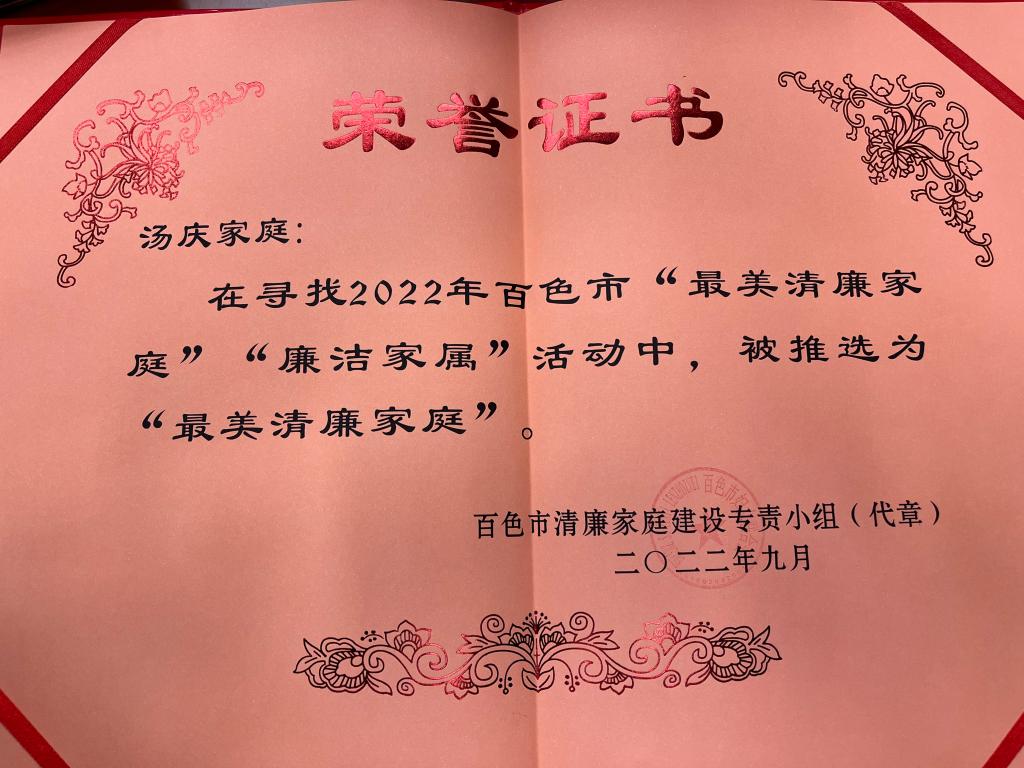 荣誉证书
汤庆家庭：
在寻找2022年百色市“最美清廉家
庭”“廉洁家属”活动中，被推选为
“最美清廉家庭”。
百色市清廉家庭建设专责小组（代章）
二〇二二年九月
百色市